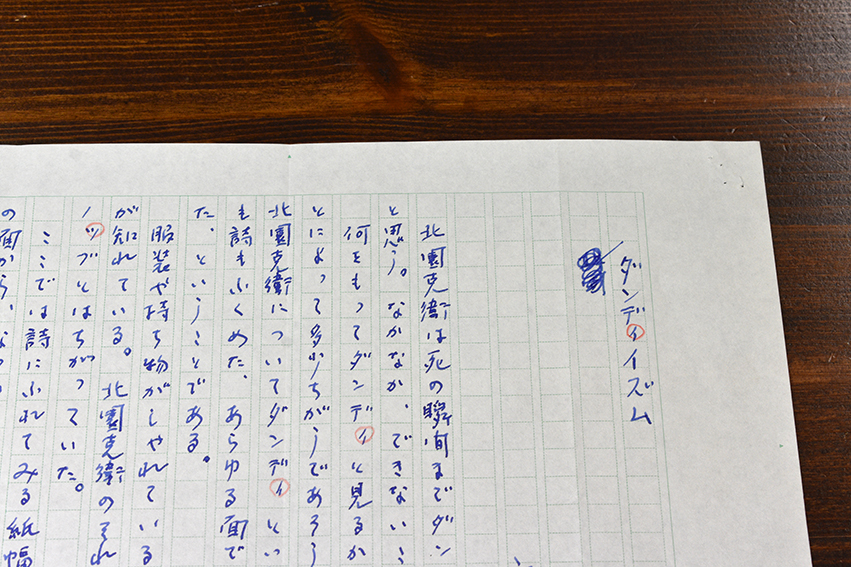 ダンディイズム
北園克衛は死の瞬間までダン
と思う。なかなか、できないこ
何をもってダンディと見るか
とによって多少ちがうであろう
北園克衛についてダンディとい
も詩もふくめた、あらゆる面で
た、ということである。
服装や持ち物がしゃれている
が知れている。北園克衛のそれ
ノッブとはちがっていた。
ここでは詩にふれてみる紙幅
の面から、